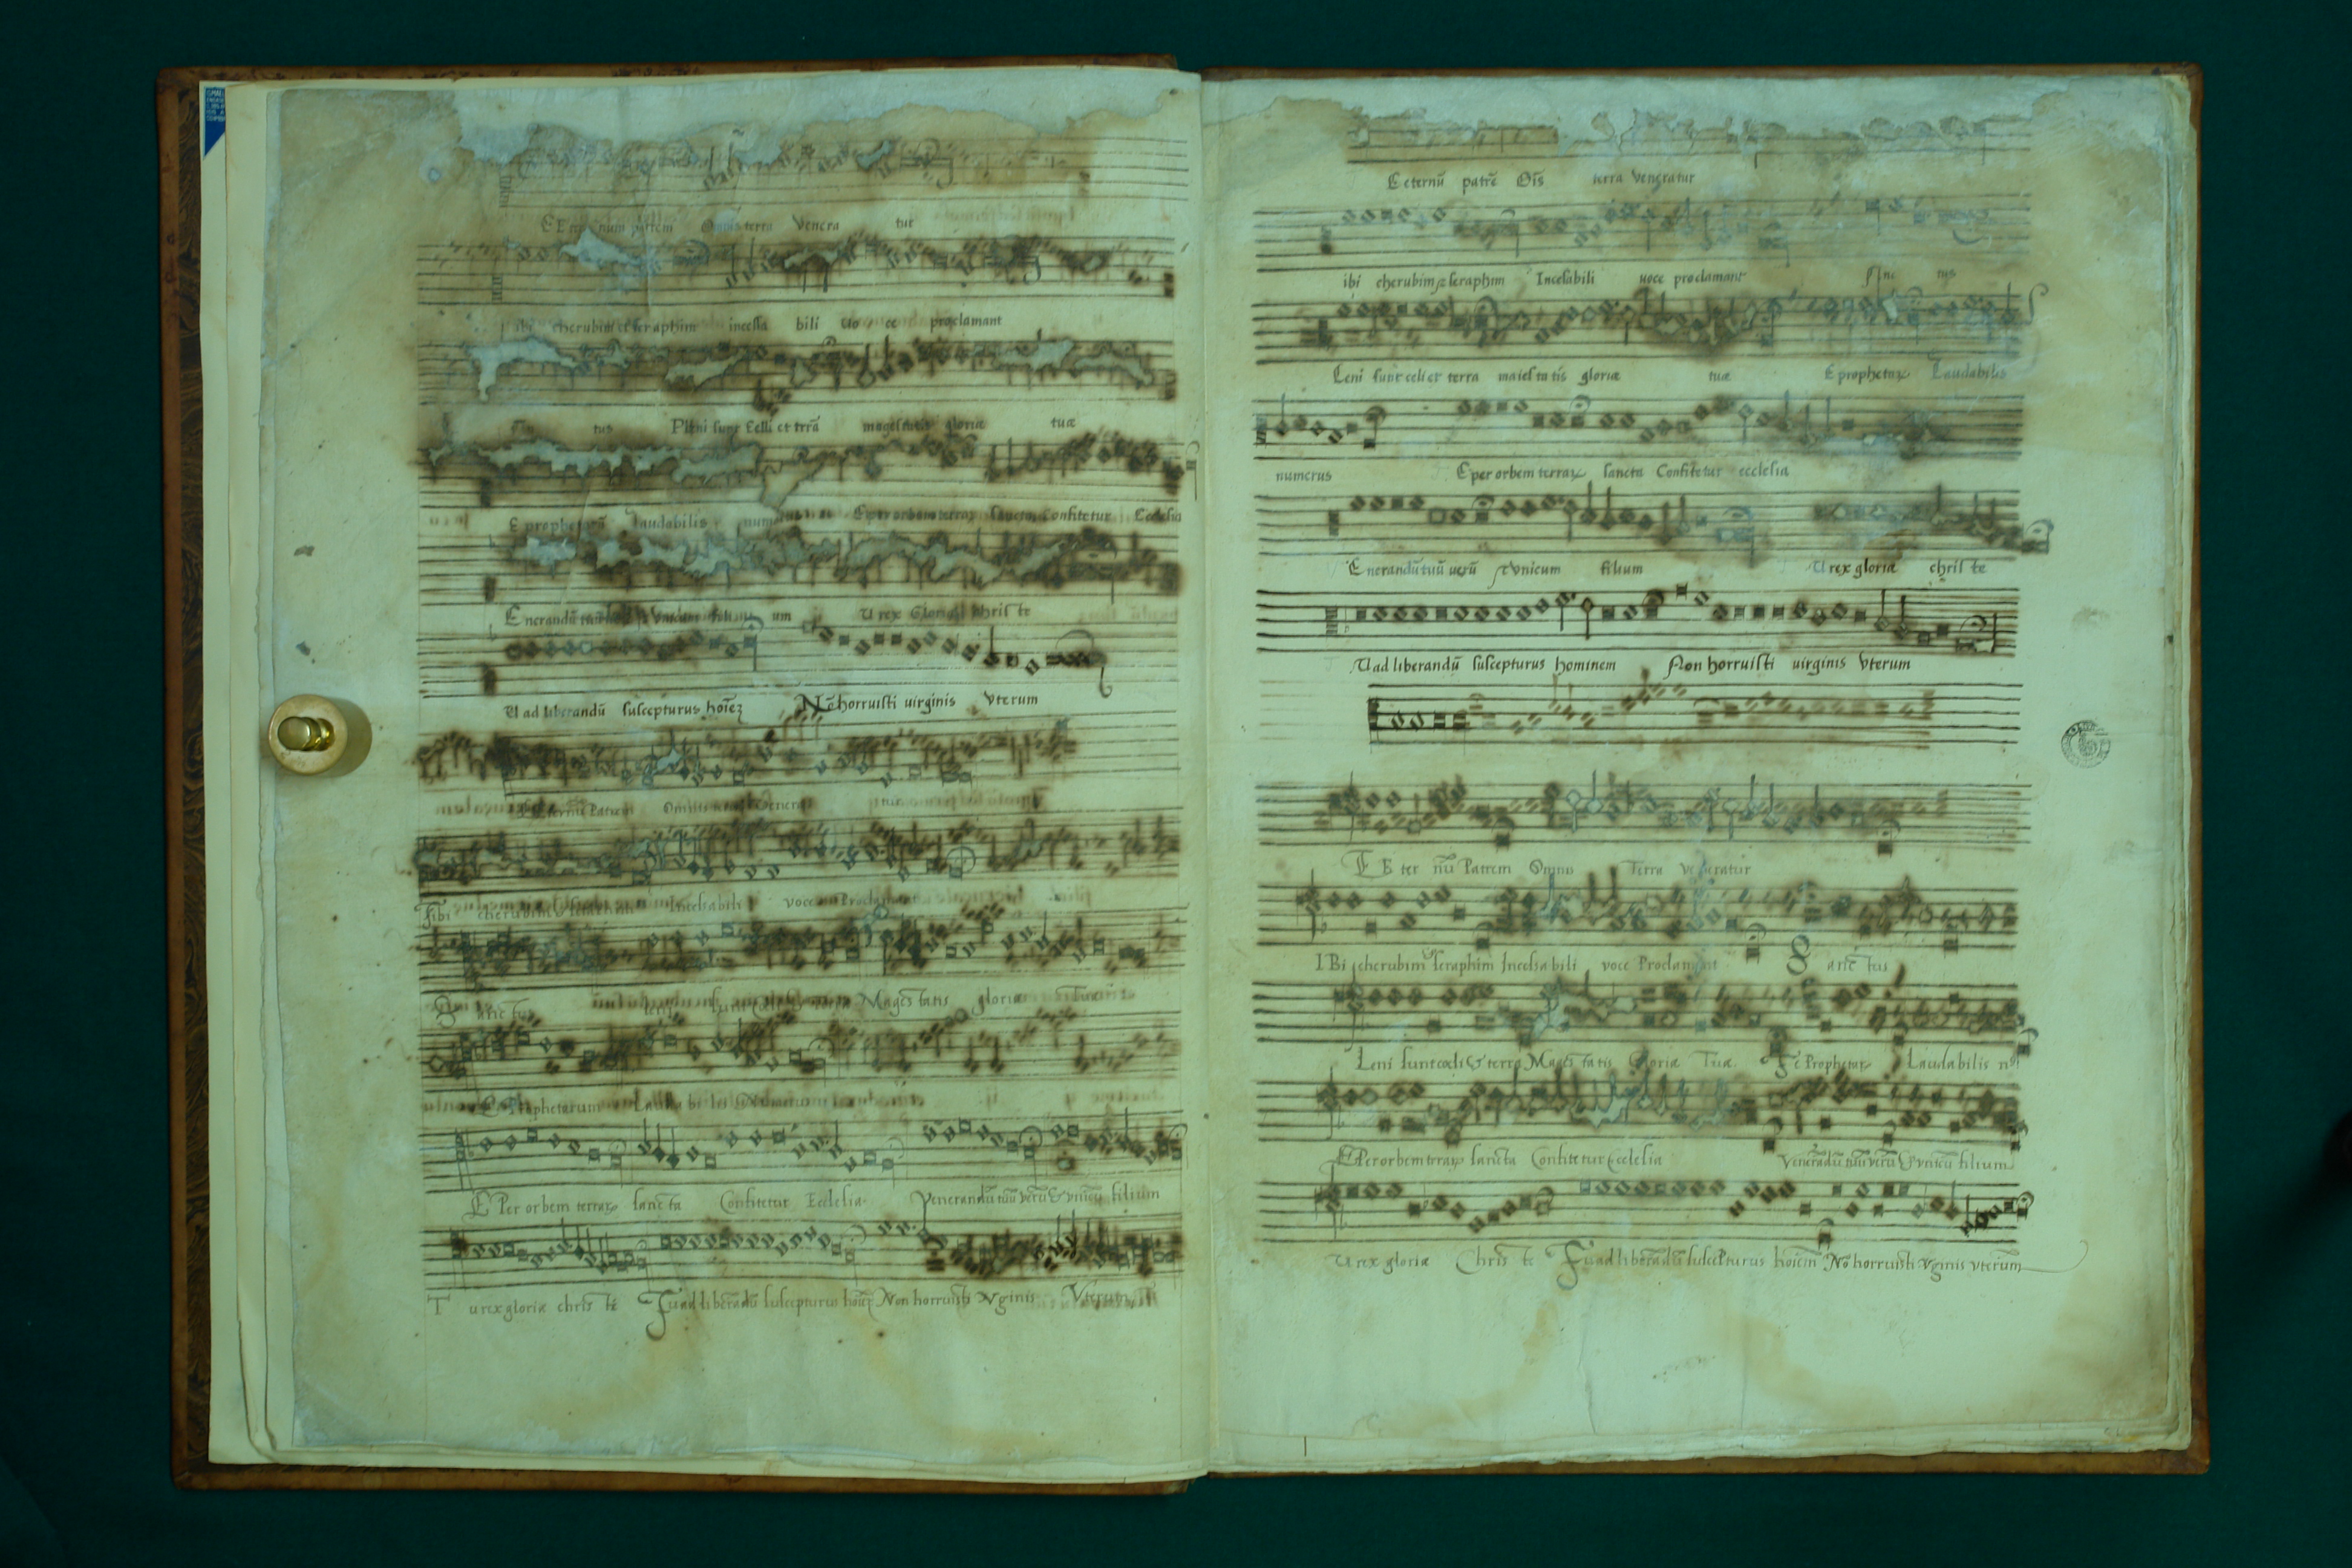 E Eter num patrem Omnis terra Venera tur
ibi cherubim et seraphim incessa bili uo ce proclamant
tus Pleni sunt Celli et terrā magestatis gloriæ tuæ
E prophetarū laudabilis numerus E per orbem terraꝝ sancta Confitetur Ecclesia
Enerandū tuū Vnicum filium um U rex Gloriæ Christe
U ad liberandū suscepturus hoīeꝫ Nō horruisti uirginis Vterum
Eternū Patrem Omnis Venera tur
Tibi cherubim & seraphim Incessabili voce Proclamant
Sanc tus Magestatis gloriæ Tuæ
E Prophetarum Lauda bi lis Numerus
E Per orbem terraꝝ sanc ta Confitetur Ecclesia Venerandū tuū verū & vnicū filium
T u rex gloriæ christe Tu ad liberandū suscepturus hoīeꝫ Non horruisti Vginis Vterum
E eternū patrē Oīs terra Veneratur
ibi cherubim & seraphim Incesabili uoce proclamant Sanc tus
Leni sunt celi et terra maiestatis gloriæ tuæ E prophetaꝝ Laudabilis
numerus E per orbem terraꝝ sancta Confitetur ecclesia
Enerandū tuū uerū & Vnicum filium U rex gloriæ christe
U ad liberandū suscepturus hominem Non horruisti uirginis Vterum
T E E ter nū Patrem Omnis Terra Veneratur
I Bi cherubim & seraphim Incessabili voce Proclamant Sanc tus
Leni sunt cœli & terra Magestatis Gloriæ Tuæ Te Prophetaꝝ Laudabilis n9
E Per orbem terraꝝ sancta Confitetur Ecclesia Venerādū tuū verū & vnicū filium
U rex gloriæ Christe Tu ad liberādū suscepturus hoīem Nō horruisti Vginis vterum